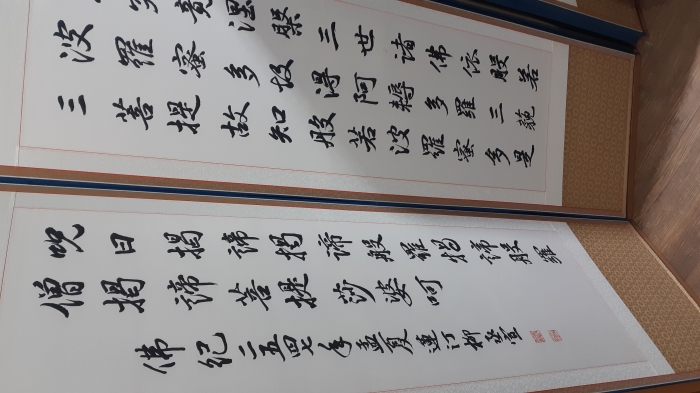 竟涅槃三世諸佛依般若
波羅蜜多故得阿耨多羅三藐
三菩提故知般若波羅蜜多是
呪曰揭諦揭諦般羅揭諦般羅
僧揭諦菩提莎婆呵
佛紀二五四七年孟夏蓮汀柳